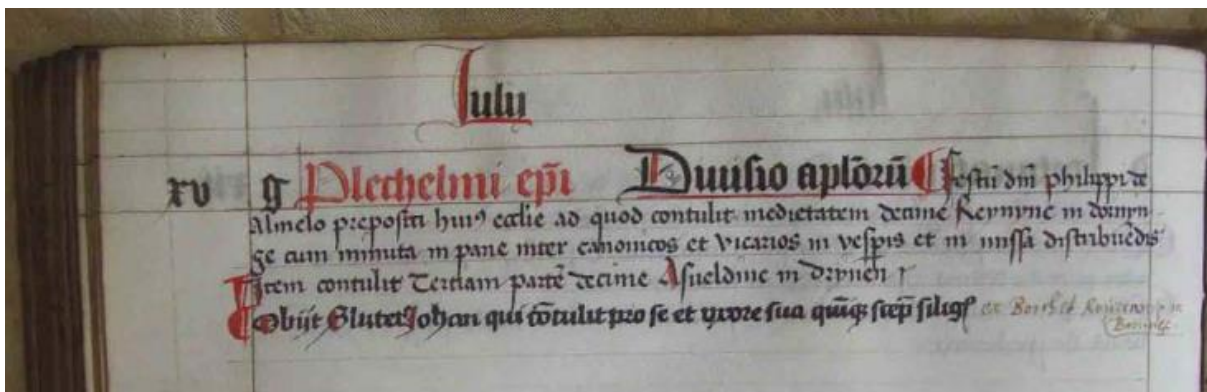 Iulii
xv g Plechelmi epī Diuisio aplōrū Festū dm̄ philippi de
Almelo prepositi huiꝰ ecclie ad quod contulit medietatem decime Reynync in
ge cum minuta in pane inter canonicos et vicarios in vesp̄is et in missa distribuēdis
Item contulit Terciam partē decime Asueldinc in
Obijt Sluter Johan qui cōtulit pro se et vxore sua quīqꝫ scep̄ siliḡ